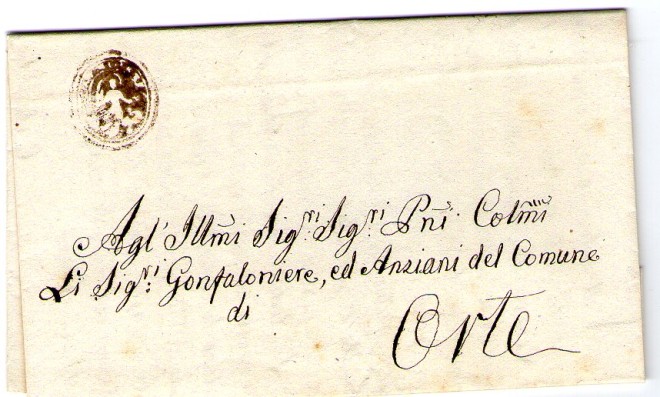 Agl' Illmi Sig.ri Sig.ri Pñi Colmi
Li Sig.ri Gonfaloniere, ed Anziani del Comune
di
Orte